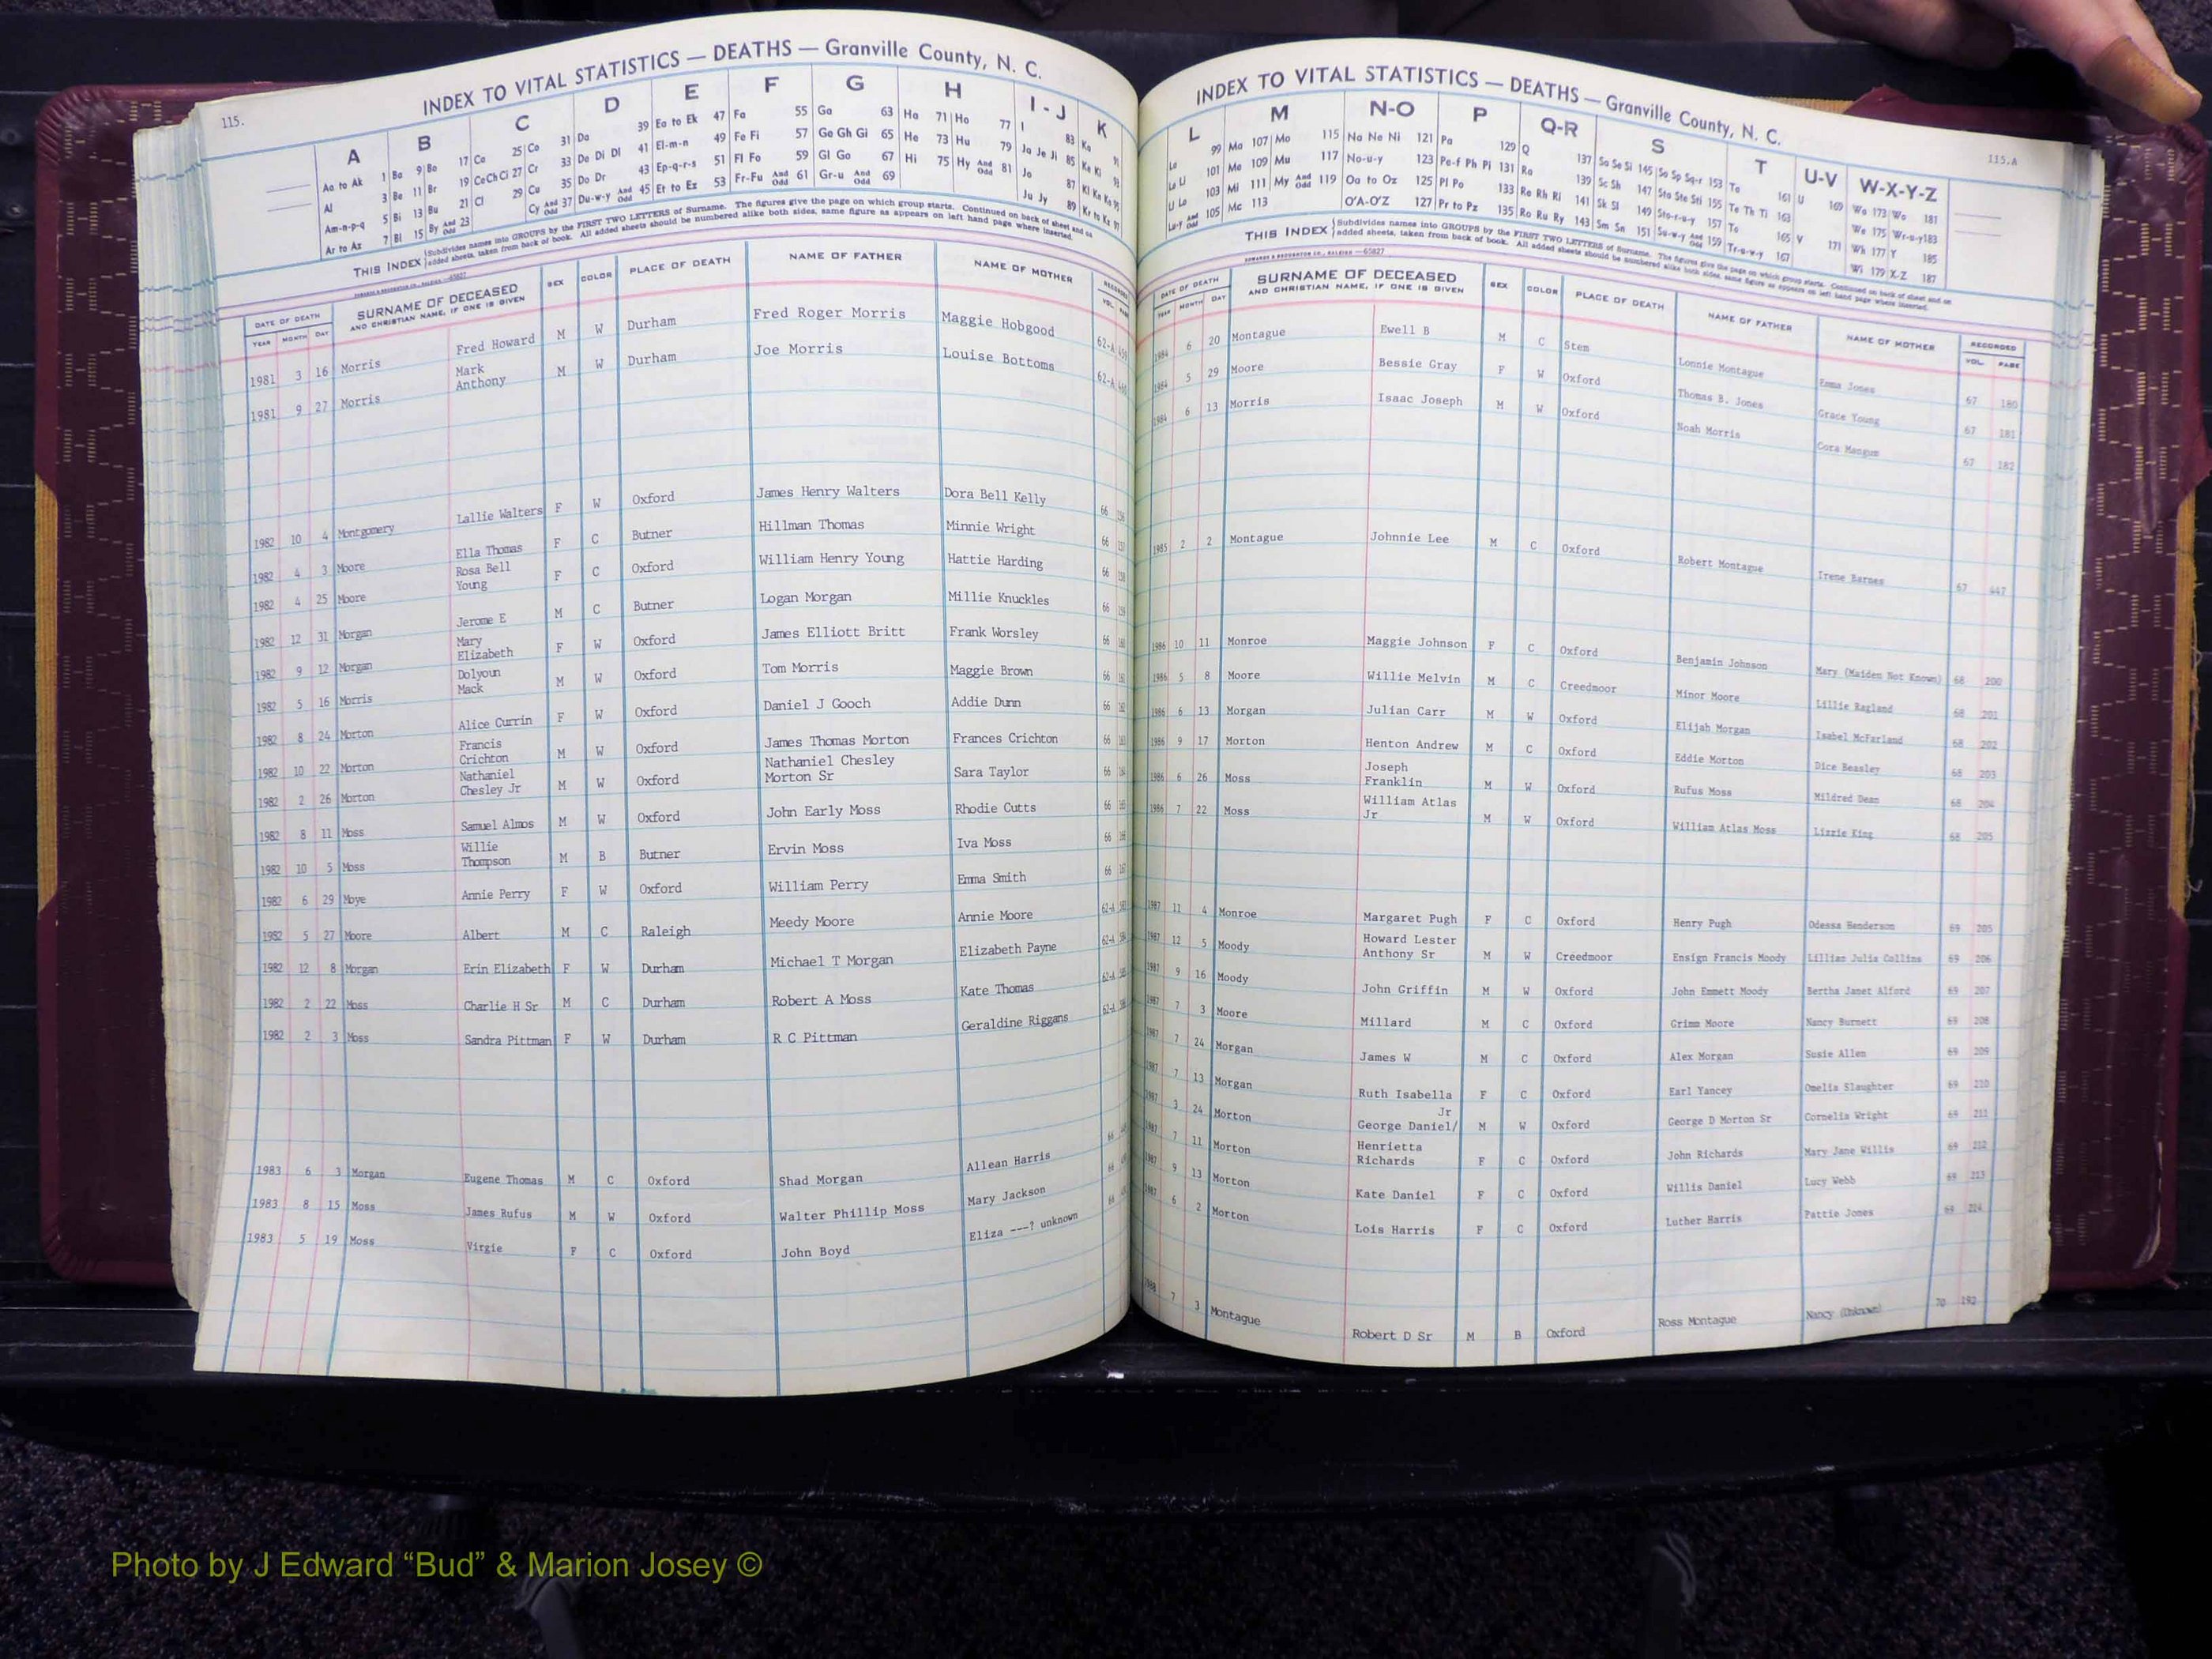 115.
INDEX TO VITAL STATISTICS — DEATHS — Granville County, N. C.
A B C D E F G H I - J K
Aa to Ak 1 Ba 9 Bo 17 Ca 25 Co 31 Da 39 Ea to Ek 47 Fa 55 Ga 63 Ha 71 Ho 77 I 83 Ka 91
Al 3 Be 11 Br 19 Ce Ch Ci 27 Cr 33 De Di Dl 41 El-m-n 49 Fe Fi 57 Ge Gh Gi 65 He 73 Hu 79 Ja Je Ji 85 Ke Ki 93
Am-n-p-q 5 Bi 13 Bu 21 Cl 29 Cu 35 Do Dr 43 Ep-q-r-s 51 Fl Fo 59 Gl Go 67 Hi 75 Hy And Odd 81 Jo 87 Kl Kn Ko 95
Ar to Az 7 Bl 15 By And Odd 23 Cy And Odd 37 Du-w-y And Odd 45 Et to Ez 53 Fr-Fu And Odd 61 Gr-u And Odd 69 Ju Jy 89 Kr to Kz 97
THIS INDEX Subdivides names into GROUPS by the FIRST TWO LETTERS of Surname. The figures give the page on which group starts. Continued on back of sheet and on
added sheets, taken from back of book. All added sheets should be numbered alike both sides, same figure as appears on left hand page where inserted.
DATE OF DEATH SURNAME OF DECEASED SEX COLOR PLACE OF DEATH NAME OF FATHER NAME OF MOTHER RECORDED
YEAR MONTH DAY AND CHRISTIAN NAME, IF ONE IS GIVEN VOL. PAGE
1981 3 16 Morris Fred Howard M W Durham Fred Roger Morris Maggie Hobgood 62-A
1981 9 27 Morris Mark Anthony M W Durham Joe Morris Louise Bottoms 62-A
1982 10 4 Montgomery Lallie Walters F W Oxford James Henry Walters Dora Bell Kelly 66
1982 4 3 Moore Ella Thomas F C Butner Hillman Thomas Minnie Wright 66
1982 4 25 Moore Rosa Bell Young F C Oxford William Henry Young Hattie Harding 66
1982 12 31 Morgan Jerome E M C Butner Logan Morgan Millie Knuckles 66
1982 9 12 Morgan Mary Elizabeth F W Oxford James Elliott Britt Frank Worsley 66
1982 5 16 Morris Dolyoun Mack M W Oxford Tom Morris Maggie Brown 66
1982 8 24 Morton Alice Currin F W Oxford Daniel J Gooch Addie Dunn 66
1982 10 22 Morton Francis Crichton M W Oxford James Thomas Morton Frances Crichton 66
1982 2 26 Morton Nathaniel Chesley Jr M W Oxford Nathaniel Chesley Morton Sr Sara Taylor 66
1982 8 11 Moss Samuel Almos M W Oxford John Early Moss Rhodie Cutts 66
1982 10 5 Moss Willie Thompson M B Butner Ervin Moss Iva Moss 66
1982 6 29 Moye Annie Perry F W Oxford William Perry Emma Smith 66
1982 5 27 Moore Albert M C Raleigh Meedy Moore Annie Moore 62-A
1982 12 8 Morgan Erin Elizabeth F W Durham Michael T Morgan Elizabeth Payne 62-A
1982 2 22 Moss Charlie H Sr M C Durham Robert A Moss Kate Thomas 62-A
1982 2 3 Moss Sandra Pittman F W Durham R C Pittman Geraldine Riggans 62-A
1983 6 3 Morgan Eugene Thomas M C Oxford Shad Morgan Allean Harris 66
1983 8 15 Moss James Rufus M W Oxford Walter Phillip Moss Mary Jackson 66
1983 5 19 Moss Virgie F C Oxford John Boyd Eliza ---? unknown 66
115.A
INDEX TO VITAL STATISTICS — DEATHS — Granville County, N. C.
L M N-O P Q-R S T U-V W-X-Y-Z
La 99 Ma 107 Mo 115 Na Ne Ni 121 Pa 129 Q 137 Sa Se Si 145 So Sp Sq-r 153 Ta 161 U 169 Wa 173 Wo 181
Le Li 101 Me 109 Mu 117 No-u-y 123 Pe-f Ph Pi 131 Ra 139 Sc Sh 147 Sta Ste Sti 155 Te Th Ti 163 We 175 Wr-u-y 183
Ll Lo 103 Mi 111 My And Odd 119 Oa to Oz 125 Pl Po 133 Re Rh Ri 141 Sk Sl 149 Sto-r-u-y 157 To 165 V 171 Wh 177 Y 185
Lu-Y Odd 105 Mc 113 O'A-O'Z 127 Pr to Pz 135 Ro Ru Ry 143 Sm Sn 151 Su-w-y And Odd 159 Tr-u-w-y 167 Wi 179 X-Z 187
THIS INDEX Subdivides names into GROUPS by the FIRST TWO LETTERS of Surname. The figures give the page on which group starts. Continued on back of sheet and on
added sheets, taken from back of book. All added sheets should be numbered alike both sides, same figure as appears on left hand page where inserted.
DATE OF DEATH SURNAME OF DECEASED SEX COLOR PLACE OF DEATH NAME OF FATHER NAME OF MOTHER RECORDED
YEAR MONTH DAY AND CHRISTIAN NAME, IF ONE IS GIVEN VOL. PAGE
1984 6 20 Montague Ewell B M C Stem Lonnie Montague Emma Jones 67 180
1984 5 29 Moore Bessie Gray F W Oxford Thomas B. Jones Grace Young 67 181
1984 6 13 Morris Isaac Joseph M W Oxford Noah Morris Cora Mangum 67 182
1985 2 2 Montague Johnnie Lee M C Oxford Robert Montague Irene Barnes 67 447
1986 10 11 Monroe Maggie Johnson F C Oxford Benjamin Johnson Mary (Maiden Not Known) 68 200
1986 5 8 Moore Willie Melvin M C Creedmoor Minor Moore Lillie Ragland 68 201
1986 6 13 Morgan Julian Carr M W Oxford Elijah Morgan Isabel McFarland 68 202
1986 9 17 Morton Henton Andrew M C Oxford Eddie Morton Dice Beasley 68 203
1986 6 26 Moss Joseph Franklin M W Oxford Rufus Moss Mildred Dean 68 204
1986 7 22 Moss William Atlas Jr M W Oxford William Atlas Moss Lizzie King 68 205
1987 11 4 Monroe Margaret Pugh F C Oxford Henry Pugh Odessa Henderson 69 205
1987 12 5 Moody Howard Lester Anthony Sr M W Creedmoor Ensign Francis Moody Lillian Julia Collins 69 206
1987 9 16 Moody John Griffin M W Oxford John Emmett Moody Bertha Janet Alford 69 207
1987 7 3 Moore Millard M C Oxford Grimm Moore Nancy Burnett 69 208
1987 7 24 Morgan James W M C Oxford Alex Morgan Susie Allen 69 209
1987 7 13 Morgan Ruth Isabella F C Oxford Earl Yancey Omelia Slaughter 69 210
1987 3 24 Morton George Daniel/ Jr M W Oxford George D Morton Sr Cornelia Wright 69 211
1987 7 11 Morton Henrietta Richards F C Oxford John Richards Mary Jane Willis 69 212
1987 9 13 Morton Kate Daniel F C Oxford Willis Daniel Lucy Webb 69 213
1987 6 2 Morton Lois Harris F C Oxford Luther Harris Pattie Jones 69 214
1988 7 3 Montague Robert D Sr M B Oxford Ross Montague Nancy (Unknown) 70 192
Photo by J Edward “Bud” & Marion Josey ©